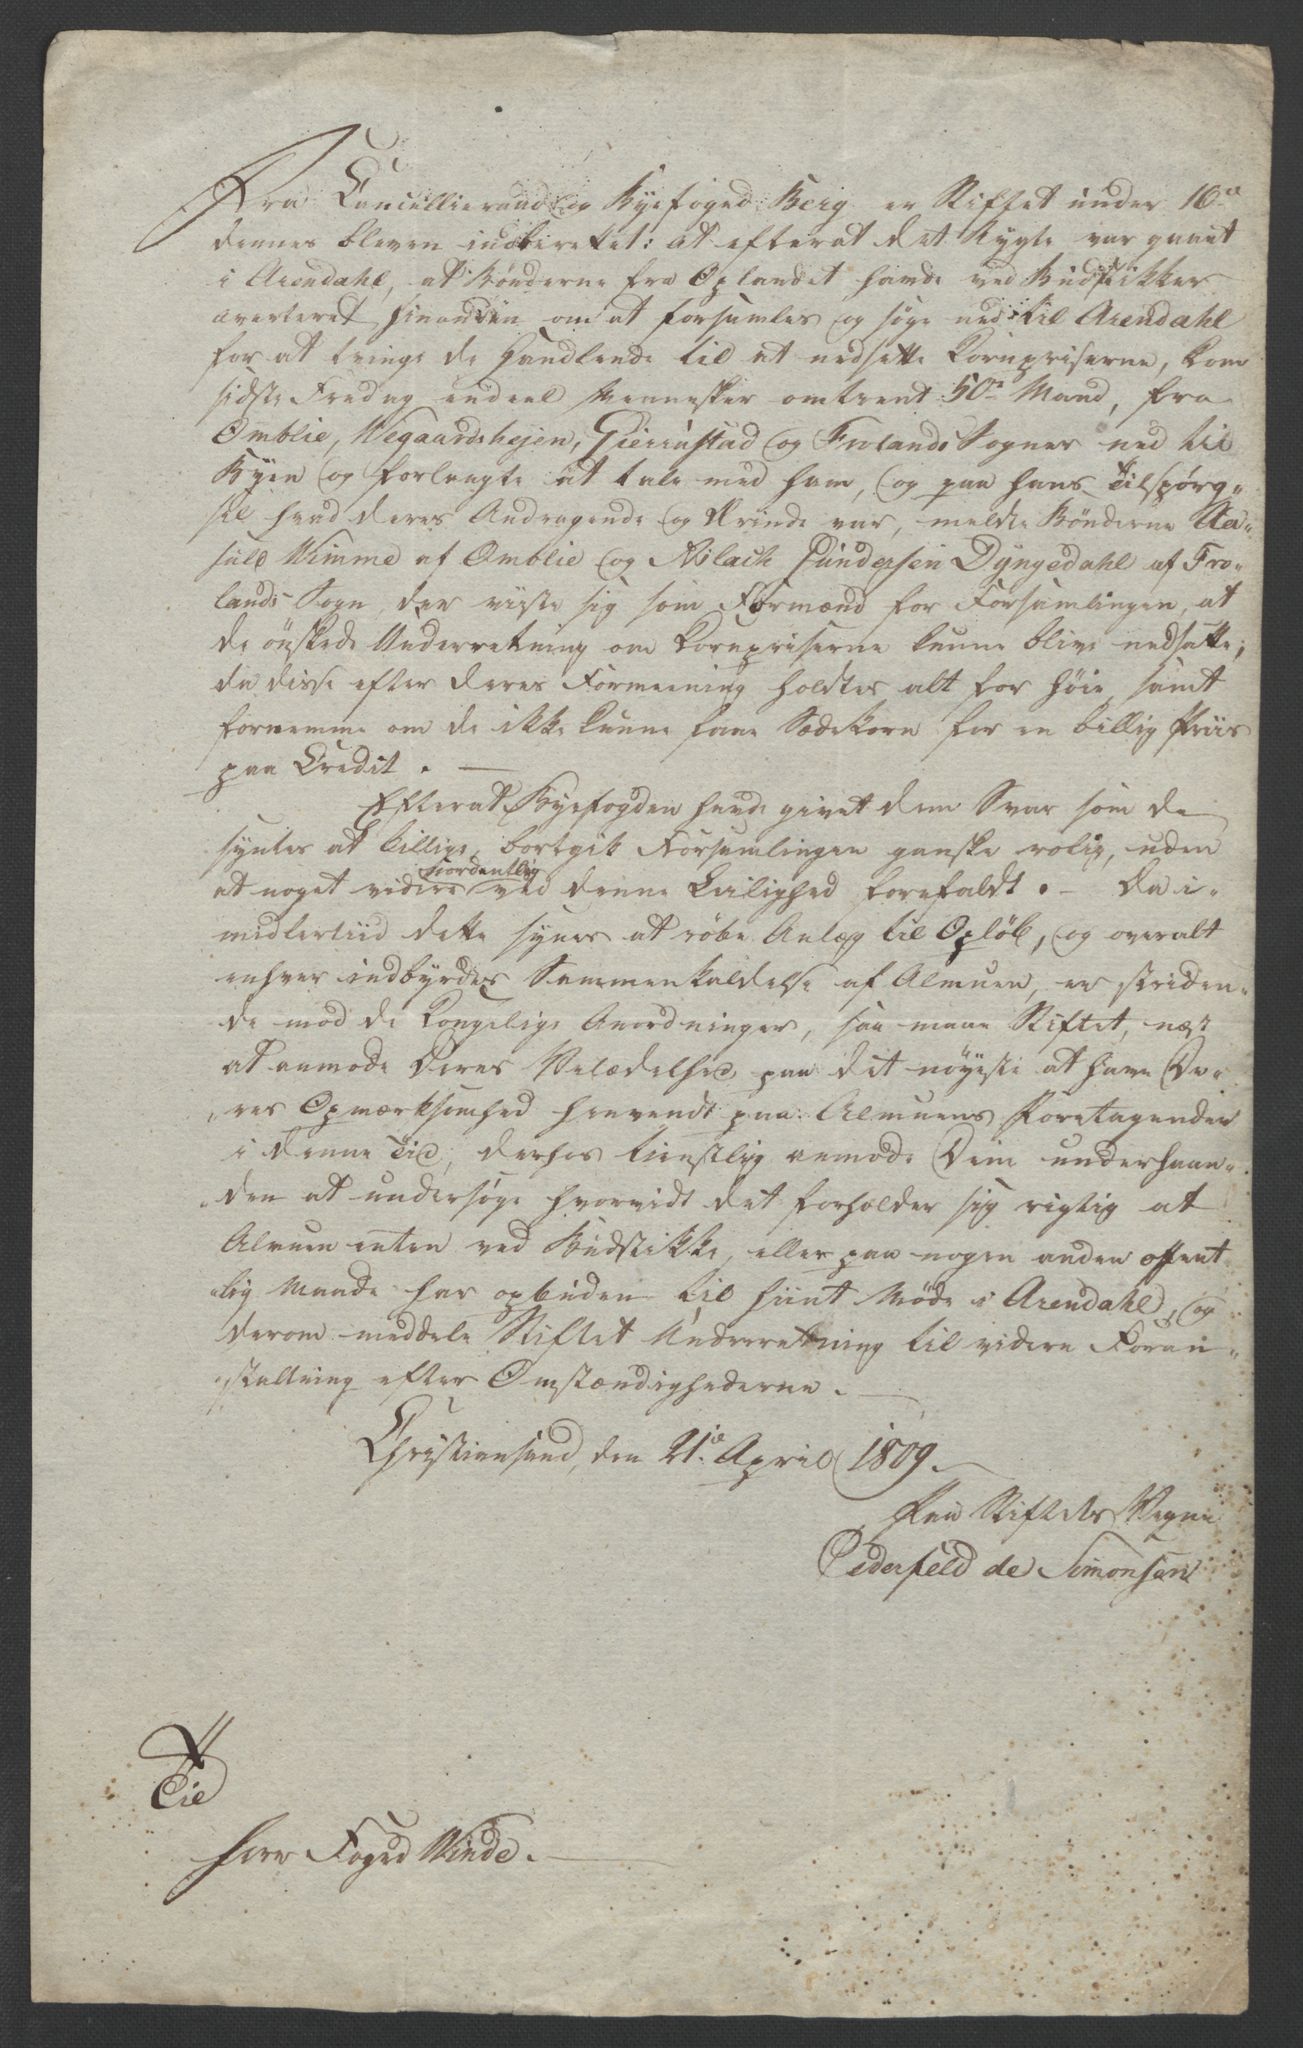 Fra Cancellieraad og Byefoged Berg er Stiftet under 16de
dennes bleven indberettet: at efterat det Rygte var gaaet
i Arendahl, at Bønderne fra Oplandet havde ved Budstikker
averteret hinanden om at forsamles og søge ned til Arendahl
for at tvinge de Handlende til at nedsette Kornpriserne, kom
sidste Fredag endeel Mennesker omtrent 50 Mand, fra
Omblie, Wegaardshejen, Gierrestad og Frolands Sogner ned til
Byen og forlangte at tale med ham, og paa hans Tilspørg-
sel hvad deres Andragende og Ærinde var, meldte Bønderne Aa-
suld Wimme af Omblie og Aslach Gundersen Dyngedahl af Fro-
lands Sogn, der viiste sig som Formænd for Forsamlingen, at
de ønskede Underretning om Kornpriserne kunne blive nedsatte,
da disse efter deres Formeening holdtes alt for høie, samt
fornemme om de ikke kunne faae Sædekorn for en billig Priis
paa Credit. —
Efterat Byefogden havde givet dem Svar som de
syntes at billige, bortgik Forsamlingen ganske rolig, uden
at noget videre uordentlig ved denne Leilighed forefaldt. - Da i-
midlertiid dette synes at røbe Anlæg til Opløb, og overalt
enhver indbyrdes Sammenkaldelse af Almuen, er striden-
de mod de Kongelige Anordninger, saa maae Stiftet, næst
at anmode Deres Velædelhed paa det nøyeste at have De-
res Opmærksomhed henvendt paa Almuens Foretagender
i denne Tid, derhos tienstlig anmode Dem underhaan-
den at undersøge hvorvidt det forholder sig rigtig at
Almuen enten ved Budstikke, eller paa nogen anden offent
lig Maade har opbuden til hiint Møde i Arendahl, og
derom meddele Stiftet Underretning til videre Foran-
staltning efter Omstændighederne. —
Christiansand, den 21de April 1809.
Paa Stiftets Vegne
Oderfeld de Simonsen
Til
Herr Foged Winde. —